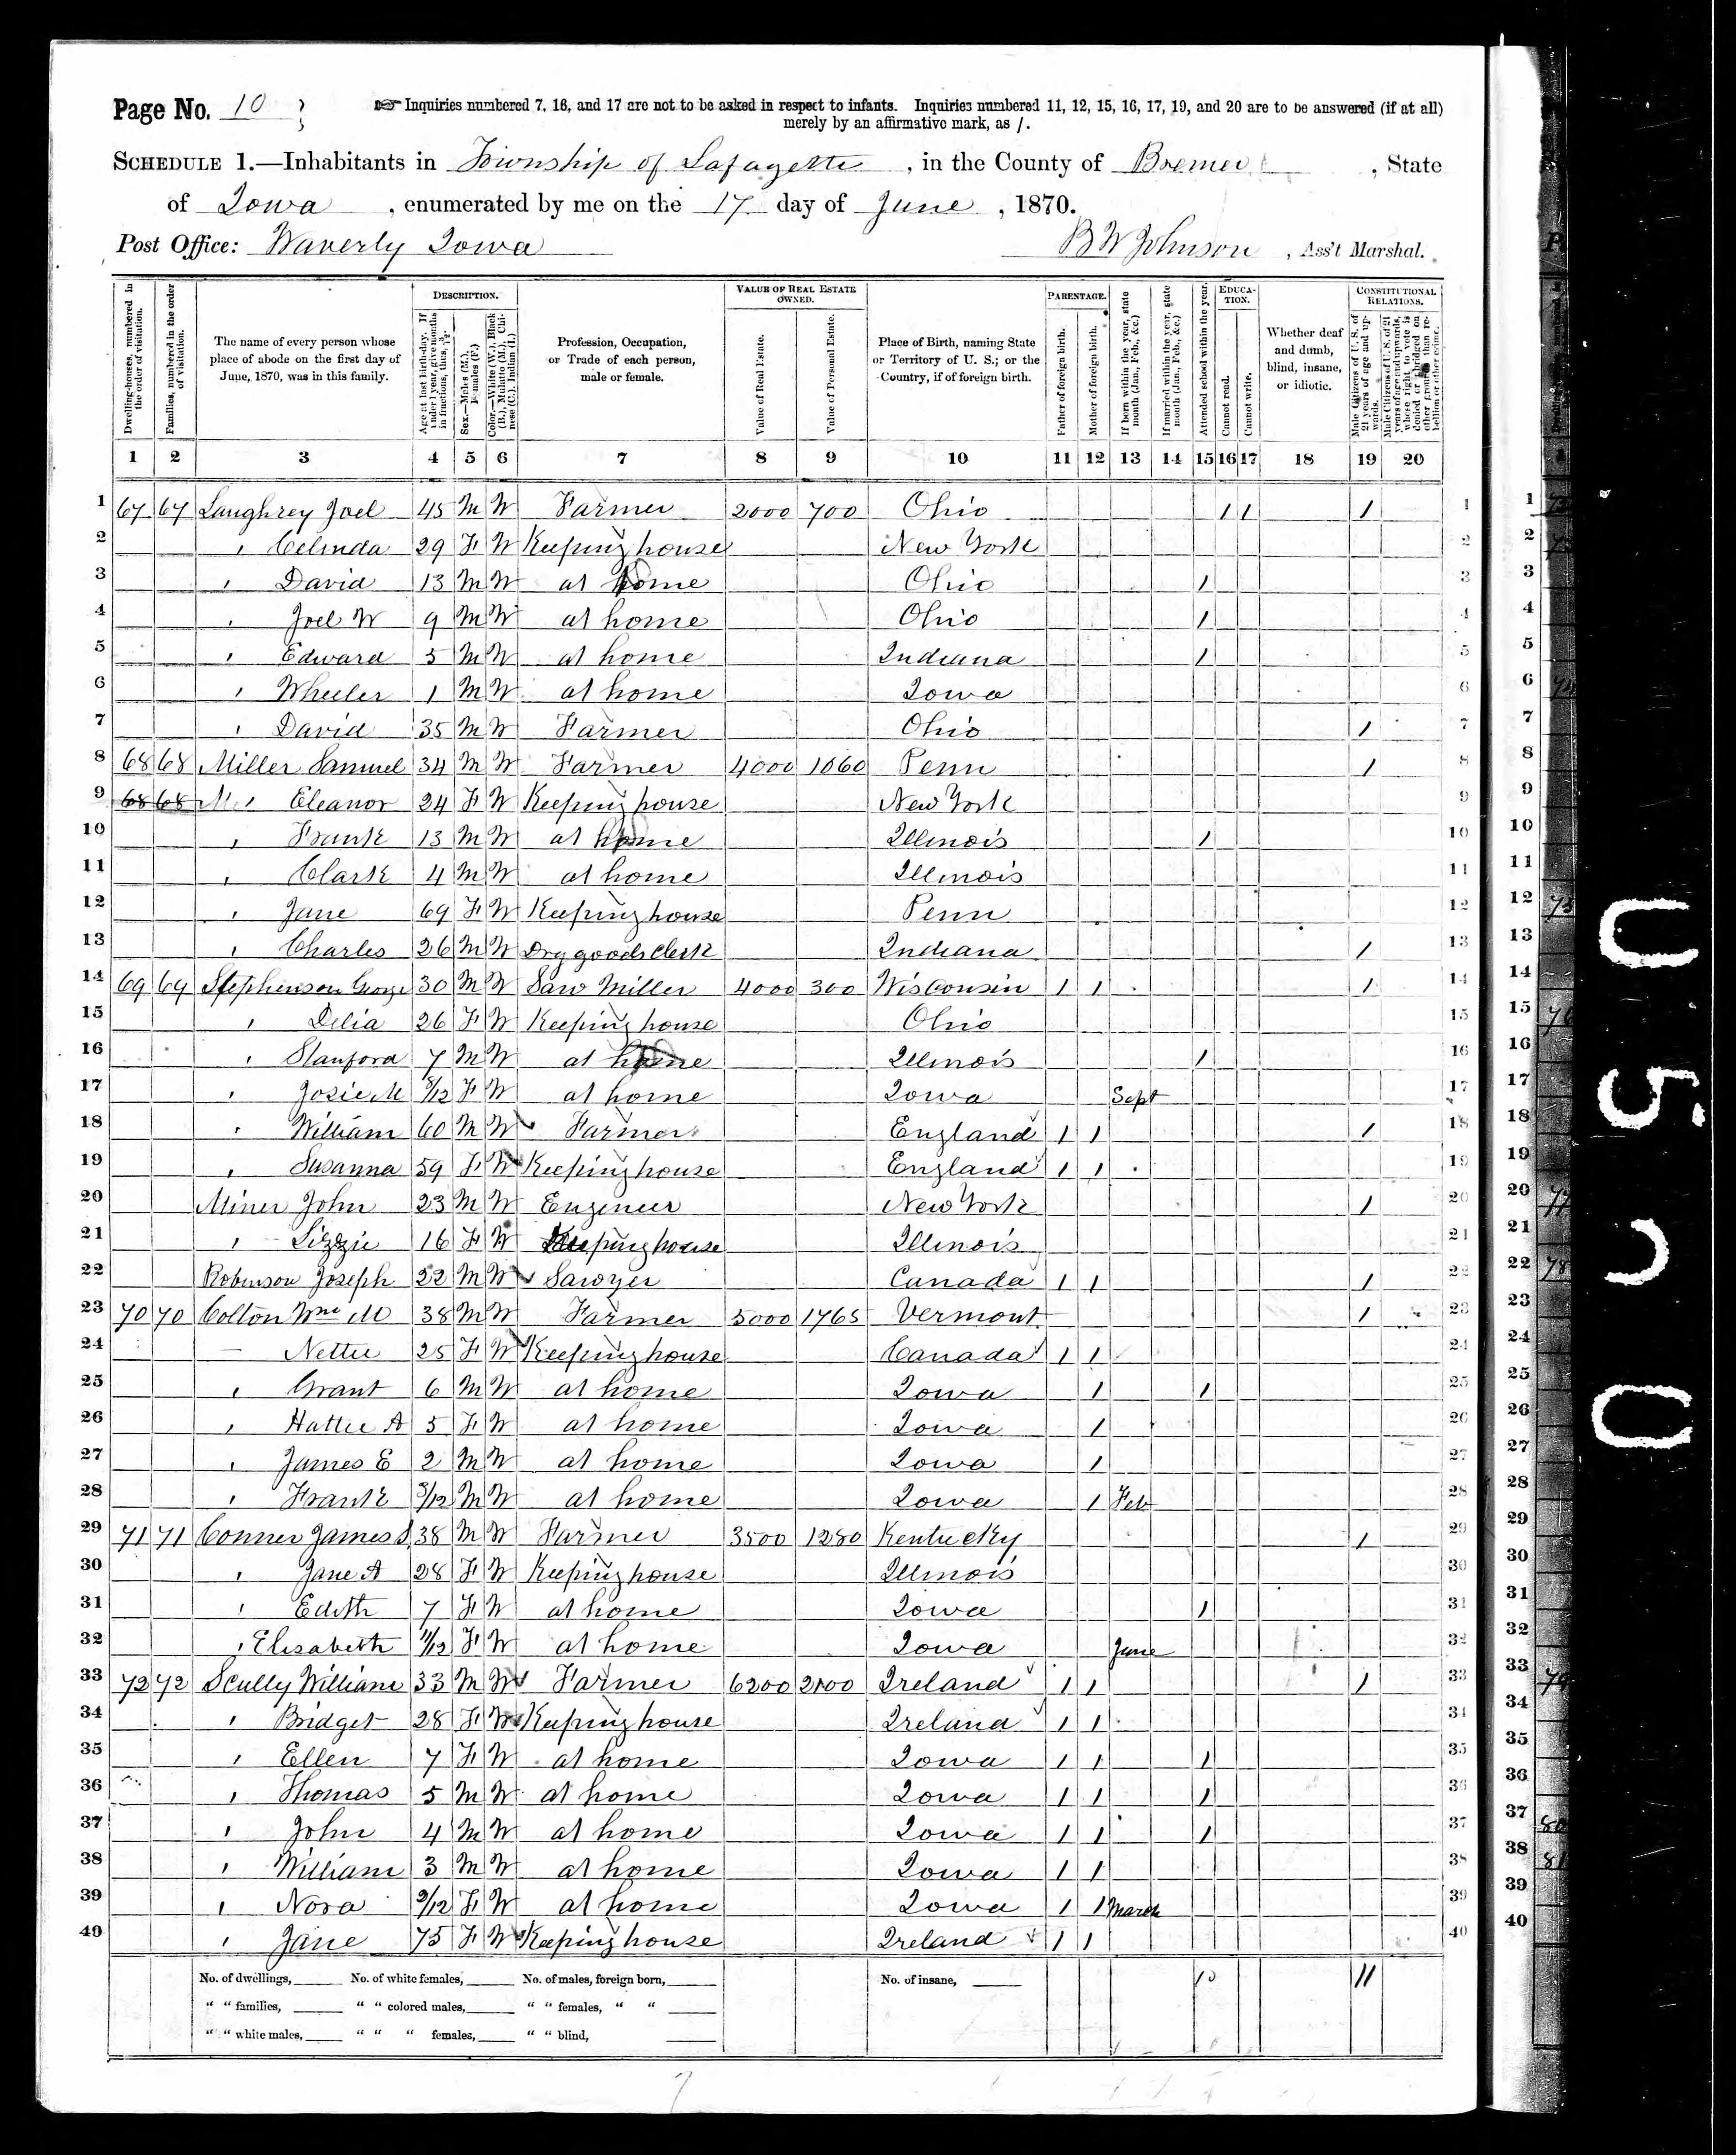 Page No. 10
☞ Inquiries numbered 7, 16, and 17 are not to be asked in respect to infants. Inquiries numbered 11, 12, 15, 16, 17, 19, and 20 are to be answered (if at all)
merely by an affirmative mark, as /.
SCHEDULE 1.—Inhabitants in Township of Lafayette, in the County of Bremer, State
of Iowa, enumerated by me on the 17 day of June, 1870.
Post Office: Waverly Iowa B W Johnson, Ass't Marshal.
DESCRIPTION. VALUE OF REAL ESTATE OWNED. PARENTAGE. EDUCATION. CONSTITUTIONAL RELATIONS.
Dwelling-houses, numbered in the order of visitation.
Families, numbered in the order of visitation.
The name of every person whose place of abode on the first day of June, 1870, was in this family.
Age at last birth-day. If under 1 year, give months in fractions, thus, 3/12.
Sex.—Males (M.), Females (F.)
Color.—White (W.), Black (B.), Mulatto (M.), Chinese (C.), Indian (I.)
Profession, Occupation, or Trade of each person, male or female.
Value of Real Estate.
Value of Personal Estate.
Place of Birth, naming State or Territory of U. S.; or the Country, if of foreign birth.
Father of foreign birth.
Mother of foreign birth.
If born within the year, state month (Jan., Feb., &c.)
If married within the year, state month (Jan., Feb., &c.)
Attended school within the year.
Cannot read.
Cannot write.
Whether deaf and dumb, blind, insane, or idiotic.
Male Citizens of U. S. of 21 years of age and upwards.
Male Citizens of U. S. of 21 years of age and upwards, whose right to vote is denied or abridged on other grounds than rebellion or other crime.
1 2 3 4 5 6 7 8 9 10 11 12 13 14 15 16 17 18 19 20
1 67 67 Laughrey Joel 45 M W Farmer 2000 700 Ohio 1 1 1 1
2 " Celinda 29 F W Keeping house New York 2
3 " David 13 M W at home Ohio 1 3
4 " Joel W 9 M W at home Ohio 1 4
5 " Edward 5 M W at home Indiana 1 5
6 " Wheeler 1 M W at home Iowa 6
7 " David 35 M W Farmer Ohio 1 7
8 68 68 Miller Samuel 34 M W Farmer 4000 1060 Penn 1 8
9 68 68 M " Eleanor 24 F W Keeping house New York 9
10 " Frank 13 M W at home Illinois 1 10
11 " Clark 4 M W at home Illinois 11
12 " Jane 69 F W Keeping house Penn 12
13 " Charles 26 M W Dry goods Clerk Indiana 1 13
14 69 69 Stephenson George 30 M W Saw Miller 4000 300 Wisconsin 1 1 1 14
15 " Delia 26 F W Keeping house Ohio 15
16 " Stanford 7 M W at home Illinois 1 16
17 " Josie M 8/12 F W at home Iowa Sept 17
18 " William 60 M W Farmer England 1 1 1 18
19 " Susanna 59 F W Keeping house England 1 1 19
20 Miner John 23 M W Engineer New York 1 20
21 " Lizzie 16 F W Keeping house Illinois 21
22 Robinson Joseph 22 M W Sawyer Canada 1 1 1 22
23 70 70 Colton Wm M 38 M W Farmer 5000 1765 Vermont 1 23
24 — Nettie 25 F W Keeping house Canada 1 1 24
25 " Grant 6 M W at home Iowa 1 1 25
26 " Hattie A 5 F W at home Iowa 1 26
27 " James E 2 M W at home Iowa 1 27
28 " Frank 3/12 M W at home Iowa 1 Feb 28
29 71 71 Conner James S 38 M W Farmer 3500 1280 Kentucky 1 29
30 " Jane A 28 F W Keeping house Illinois 30
31 " Edith 7 F W at home Iowa 1 31
32 " Elisabeth 11/12 F W at home Iowa June 32
33 72 72 Scully William 33 M W Farmer 6200 2100 Ireland 1 1 1 33
34 " Bridget 28 F W Keeping house Ireland 1 1 34
35 " Ellen 7 F W at home Iowa 1 1 1 35
36 " Thomas 5 M W at home Iowa 1 1 1 36
37 " John 4 M W at home Iowa 1 1 1 37
38 " William 3 M W at home Iowa 1 1 38
39 " Nora 3/12 F W at home Iowa 1 1 March 39
40 " Jane 75 F W Keeping house Ireland 1 1 40
No. of dwellings, No. of white females, No. of males, foreign born, No. of insane, 10 11
" " families, " " colored males, " " females, " "
" " white males, " " " females, " " blind,